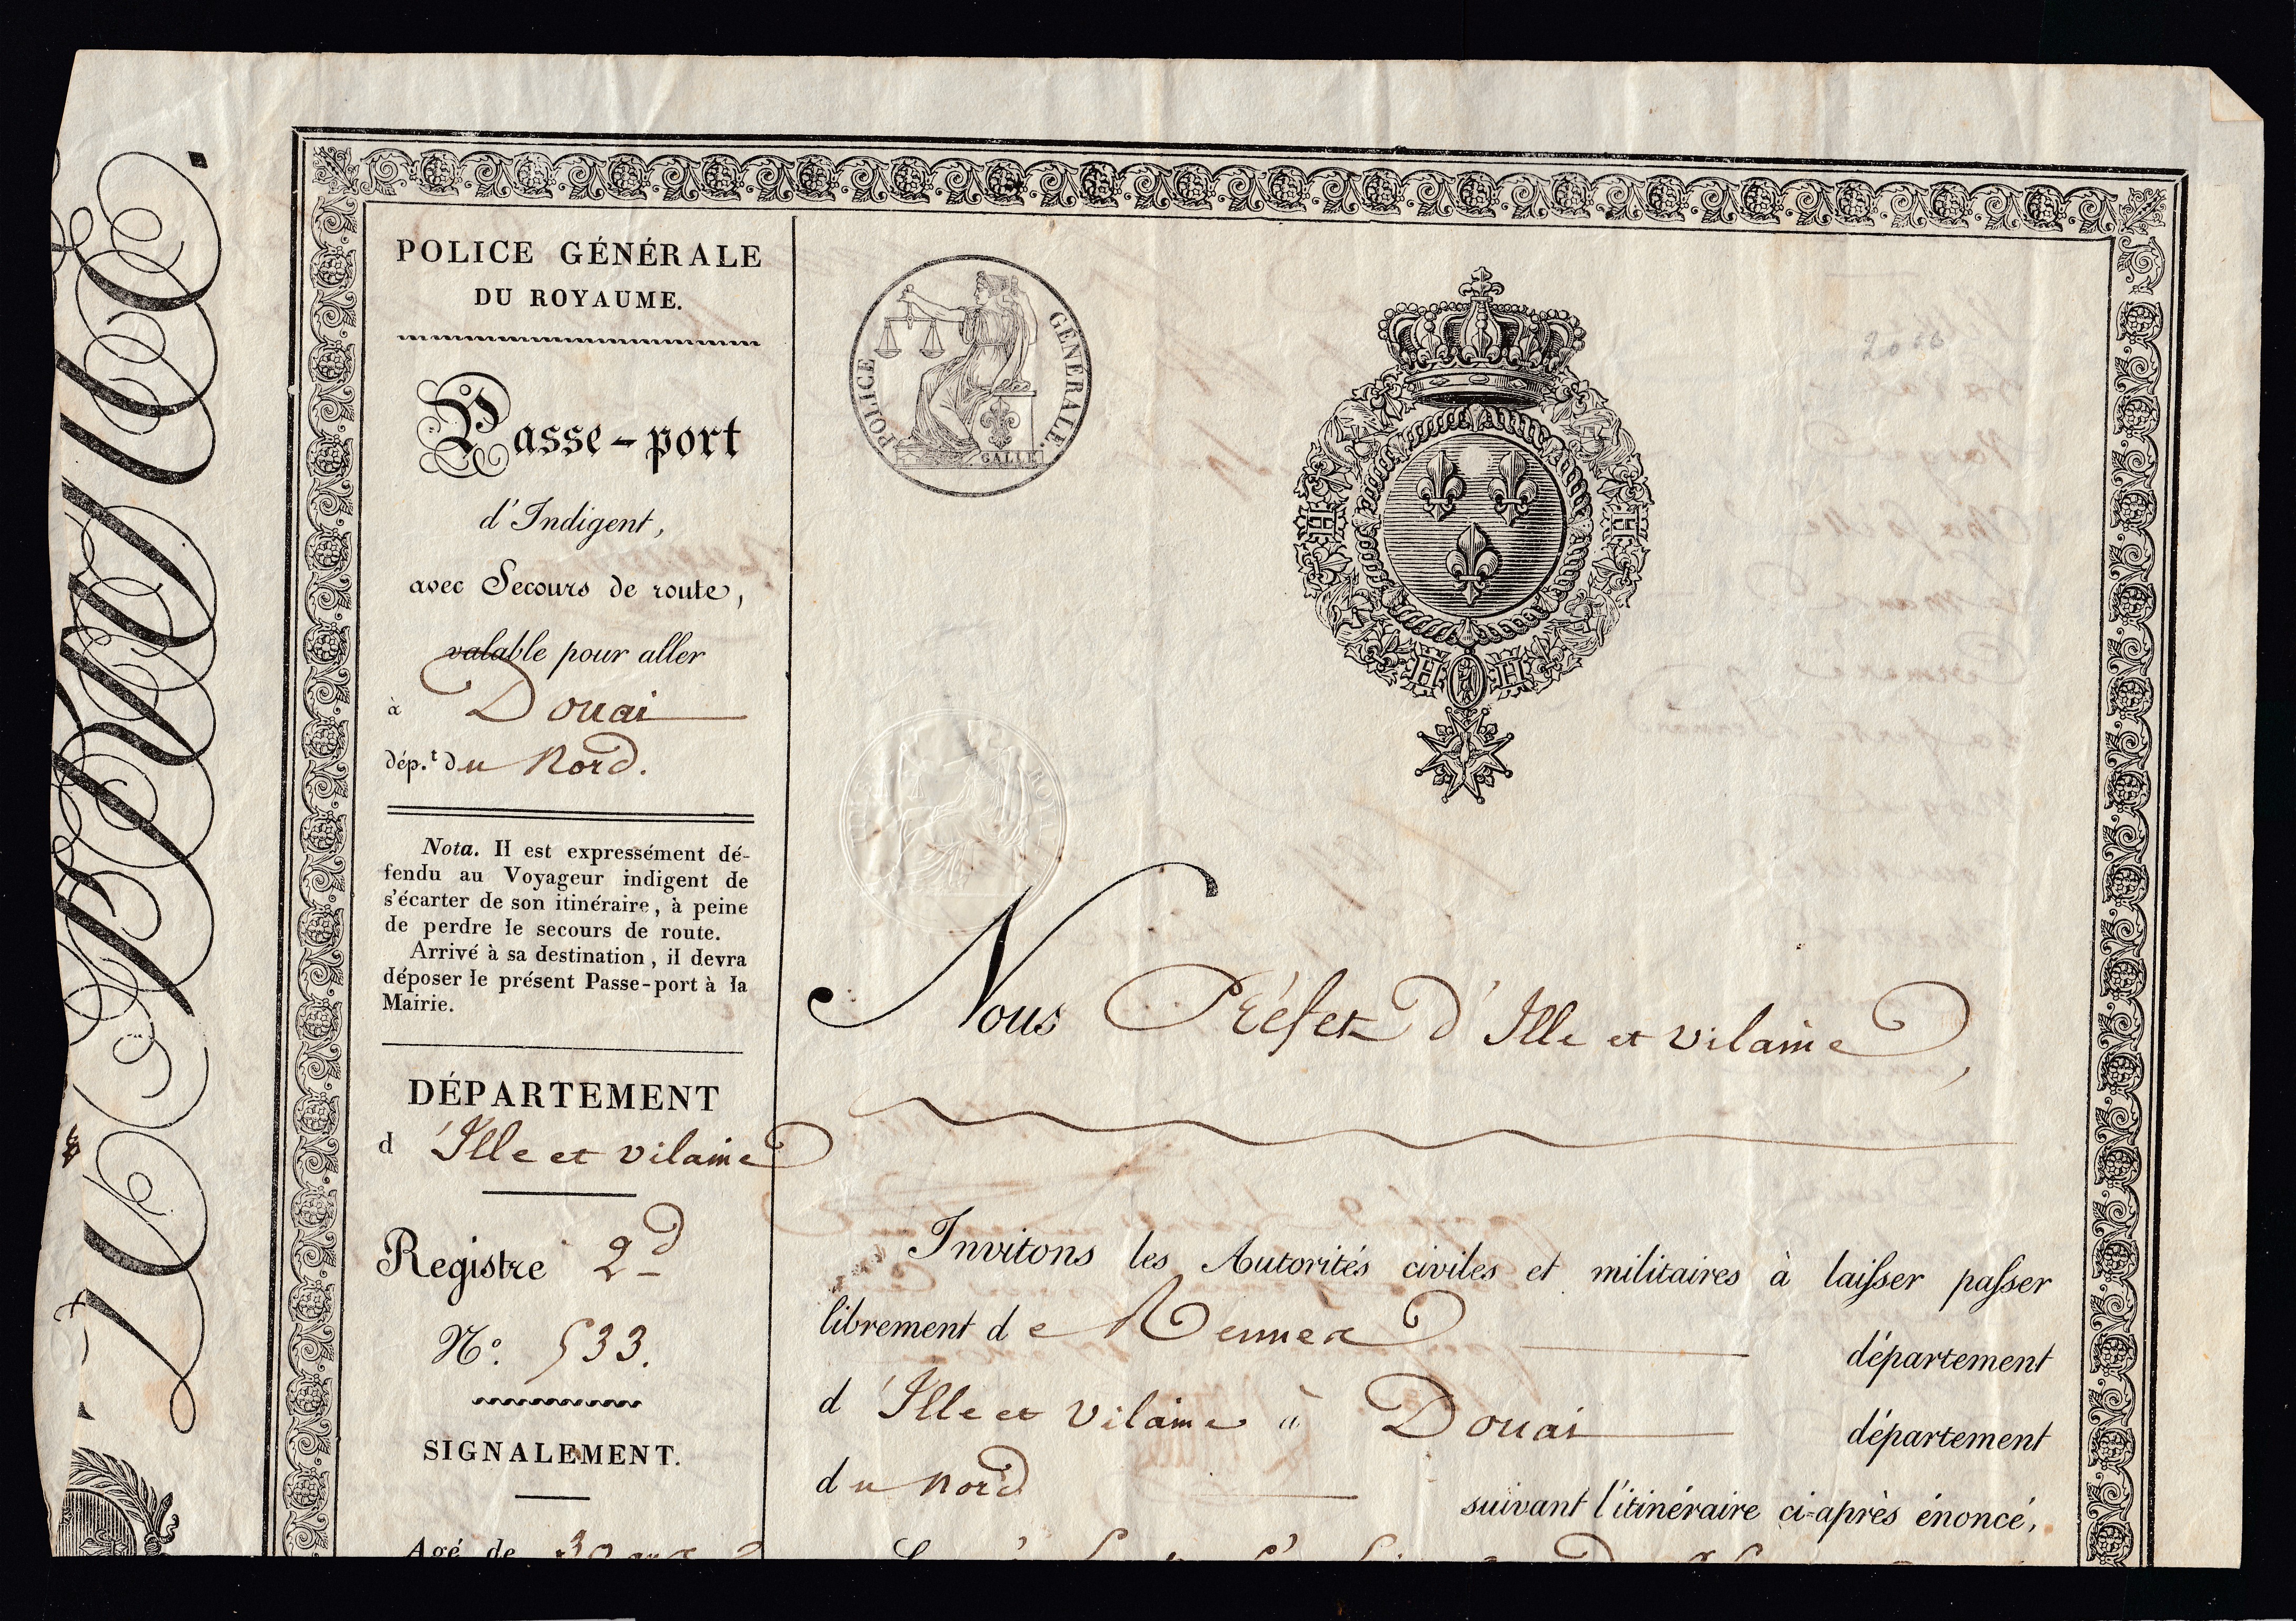 POLICE GÉNÉRALE
DU ROYAUME.
Passe-port
d'Indigent,
avec Secours de route,
valable pour aller
à Douai
dép.t du Nord.
Nota. Il est expressément dé-
fendu au Voyageur indigent de
s'écarter de son itinéraire, à peine
de perdre le secours de route.
Arrivé à sa destination, il devra
déposer le présent Passe-port à la
Mairie.
DÉPARTEMENT
d'Ille et vilaine
Registre 2d
N°. 533.
SIGNALEMENT.
Agé de 30 ans
POLICE GÉNÉRALE.
GALLE
Nous Préfet d'Ille et vilaine,
Invitons les Autorités civiles et militaires à laisser passer
librement de Rennes département
d'Ille et vilaine à Douai département
du nord suivant l'itinéraire ci-après énoncé,